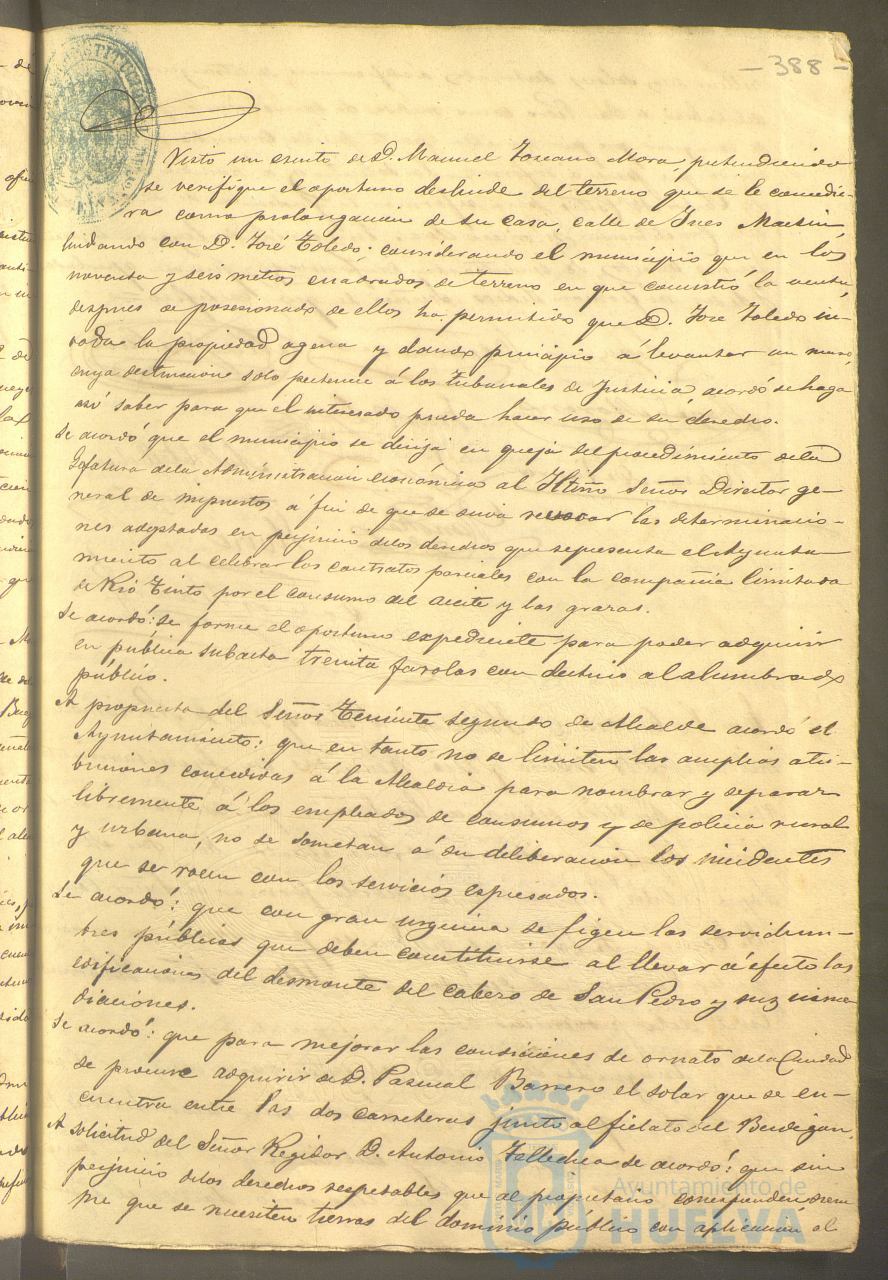 - 388 -
Visto un escrito de D. Manuel Toscano Mora pretendiendo
se verifique el oportuno deslinde del terreno que se le concedie-
ra como prolongacion de su casa, calle de Ines Martin,
lindando con D. José Toledo: considerando el municipio que en los
noventa y seis metros cuadrados de terreno en que consistió la venta
despues de posesionado de ellos ha permitido que D. José Toledo in-
vada la propiedad agena y dando principio á levantar un muro
cuya destruccion solo pertenece á los tribunales de Justicia, acordó se haga
asi saber para que el interesado pueda hacer uso de su derecho.
Se acordó que el municipio se dirija en queja del procedimiento de la
Gefatura de la Administracion económica al Iltmo Señor Director ge-
neral de impuestos á fin de que se sirva revocar las determinacio-
nes adoptadas en perjuicio de los derechos que representa el Ayunta-
miento al celebrar los contratos parciales con la compañia limitada
de Rio Tinto por el consumo del aceite y las grazas.
Se acordó: se forme el oportuno expediente para poder adquirir
en pública subasta treinta farolas con destino al alumbrado
público.
A propuesta del Señor Teniente segundo de Alcalde acordó el
Ayuntamiento: que en tanto no se limiten las amplias atri-
buciones concedidas á la Alcaldia para nombrar y separar
libremente á los empleados de consumos y de policia rural
y urbana, no se sometan á su deliberacion los incidentes
que se rocen con los servicios espresados.
Se acordó: que con gran urgencia se figen las servidum-
bres públicas que deben constituirse al llevar á efecto las
edificaciones del desmonte del cabezo de San Pedro y sus inme
diaciones.
Se acordó: que para mejorar las condiciones de ornato de la Ciudad
se procure adquirir de D. Pascual Barrero el solar que se en-
cuentra entre las dos carreteras junto al fielato del Berdigon,
A solicitud del Señor Regidor D. Antonio Tellechea se acordó: que sin
perjuicio de los derechos respetables que al propietario corresponden
me que se necesiten tierras del dominio público con aplicacion al
Ayuntamiento de
HUELVA